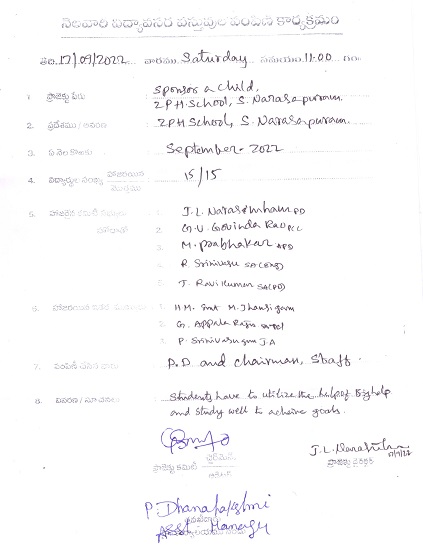 నెలవారీ విద్యావసర వస్తువుల పంపిణి కార్యక్రమం
తేది. 17/09/2022 వారము Saturday సమయం 11:00 గం.
1. ప్రాజెక్టు పేరు Sponsor a child,
ZPH School, S. Narasapuram.
2. ప్రదేశము / చిరునామా ZPH School, S. Narasapuram.
3. ఏ నెల కొరకు September-2022
4. విద్యార్థుల సంఖ్య హాజరయిన / మొత్తము 15/15
5. హాజరైన కమిటీ సభ్యులు 1. J.L. Narasimham PD
2. G.V. Govinda Rao
3. M. Prabhakar APD
4. R Srinivasu SA(Eng)
5. T. Ravi Kumar SA(PD)
6. 1. HM. Smt M. Jhansi
2. G. Appala Raju
3. P. Srinivasu J.A
7. పంపిణీ చేసిన వారు P.D. and Chairman, Staff.
8. వివరణ / సూచనలు Students have to utilize the help of Bighelp
and study well to achieve goals.
చైర్మెన్
ప్రాజెక్టు కమిటీ
J.L. Narasimham
ప్రాజెక్టు డైరెక్టర్
P. Dhanalakshmi
Asst. Manager